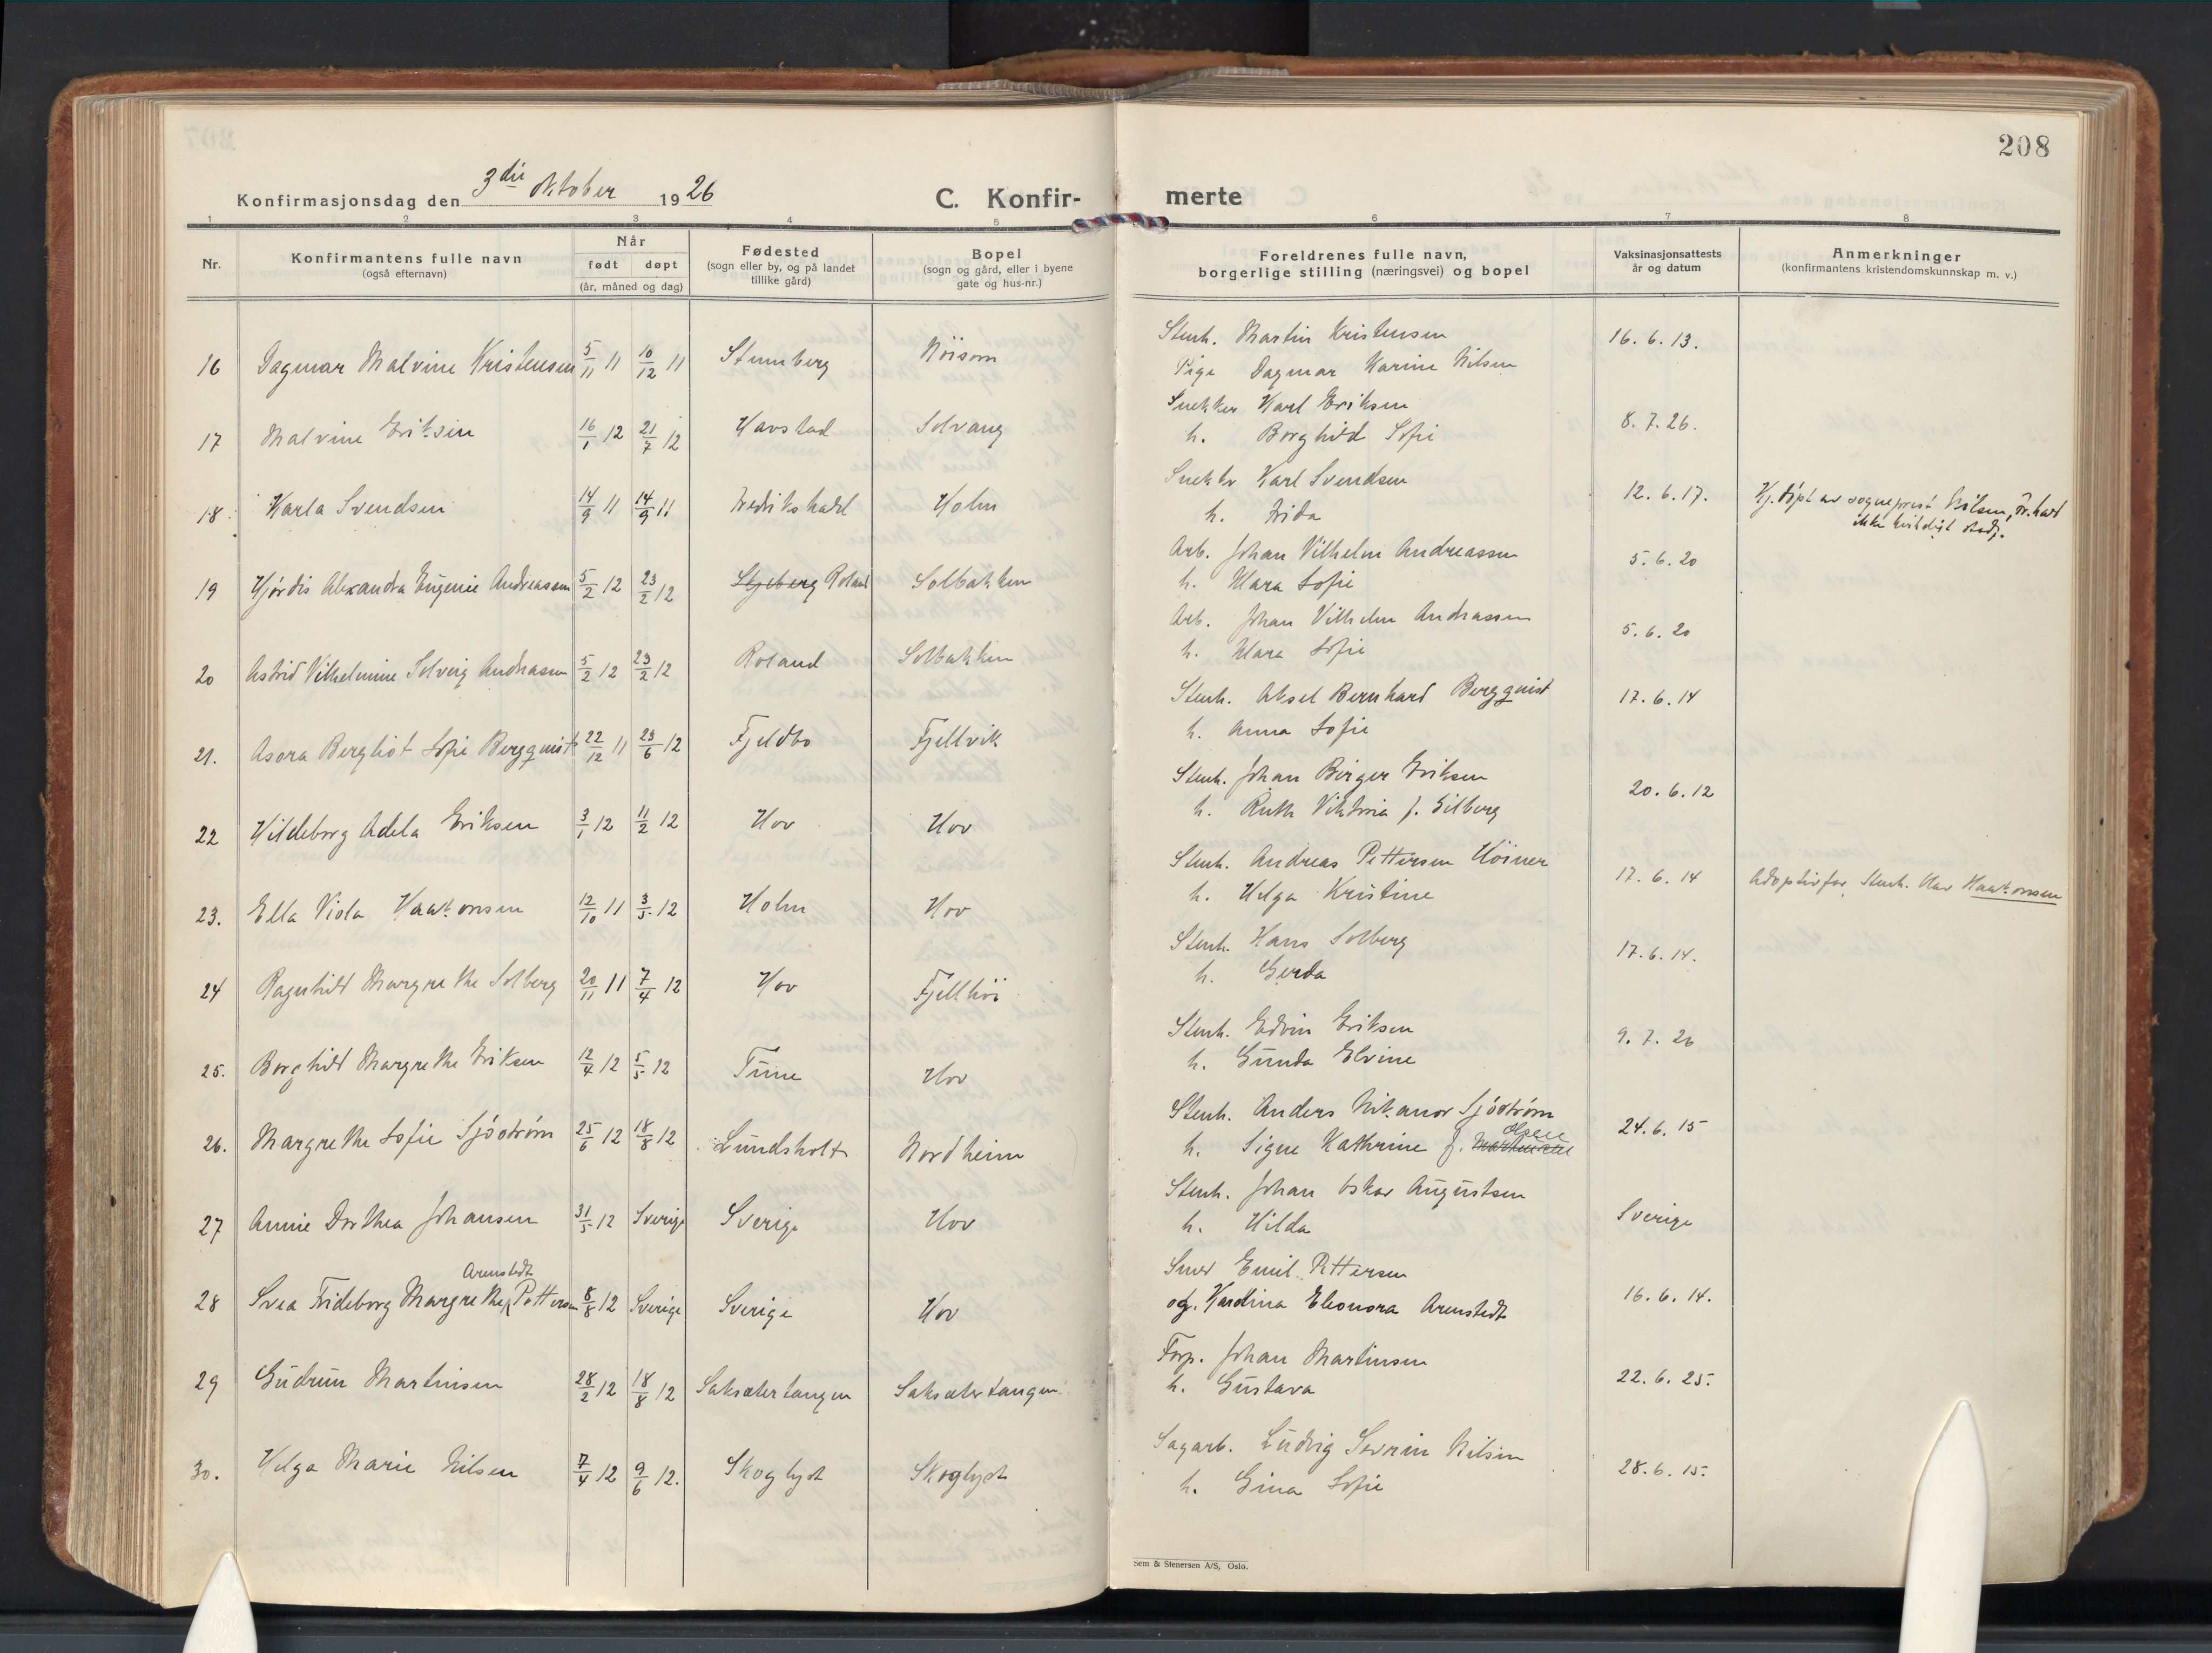 208
Konfirmasjonsdag den 3die Oktober 1926
C. Konfir-
merte
1 2 3 4 5 6 7 8
Nr.
Konfirmantens fulle navn
(også efternavn)
Når
født døpt
(år, måned og dag)
Fødested
(sogn eller by, og på landet
tillike gård)
Bopel
(sogn og gård, eller i byene
gate og hus-nr.)
Foreldrenes fulle navn,
borgerlige stilling (næringsvei) og bopel
Vaksinasjonsattests
år og datum
Anmerkninger
(konfirmantens kristendomskunnskap m. v.)
16 Dagmar Malvine Kristensen 5/11 11 10/12 11 Stumberg Röisom
Stenh. Martin Kristensen 16. 6. 13.
Pige Dagmar Karine Nilsen
17 Malvine Eriksen 16/1 12 21/7 12 Havstad Solvang
Snekker Karl Eriksen 8. 7. 26.
h. Borghild Sofie
18. Karla Svendsen 14/9 11 14/9 11 Fredrikshald Holm
Snekker Karl Svendsen 12. 6. 17. Hj. døpt av sogneprest Nilsen, Fr.hald
h. Frida ikke
19 Hjørdis Alexandra Eugenie Andreassen 5/2 12 23/2 12 Skjeberg Roland Solbakken
Arb. Johan Vilhelm Andreassen 5. 6. 20
h. Klara Sofie
20 Astrid Vilhelmine Solveig Andreassen 5/2 12 23/2 12 Roland Solbakken
Arb. Johan Vilhelm Andreassen 5. 6. 20
h. Klara Sofie
21. Asora Bergliot Sofie Bergquist 22/12 11 23/6 12 Fjeldbo Fjellvik
Stenh. Aksel Bernhard Bergquist 17. 6. 14
h. Anna Sofie
22 Hildeborg Adela Eriksen 3/1 12 11/2 12 Hov Hov
Stenh. Johan Birger Eriksen 20. 6. 12
h. Ruth Viktoria f. Gilberg
23. Ella Viola Haakonsen 12/10 11 3/5 12 Holm Hov
Stenh. Andreas Pettersen Höiner 17. 6. 14 Adoptivfar Stenh. Olav Haakonsen
h. Helga Kristine
24 Ragnhild Margrethe Solberg 20/11 11 7/4 12 Hov Fjellhöi
Stenh. Hans Solberg 17. 6. 14.
h. Gerda
25. Borghild Margrethe Eriksen 12/4 12 5/5 12 Tune Hov
Stenh. Edvin Eriksen 9. 7. 26
h. Gunda Elvine
26. Margrethe Sofie Sjöström 25/6 12 18/8 12 Lundsholt Nordheim
Stenh. Anders Nikanor Sjöström 24. 6. 15
Olsen
h. Signe Kathrine f. Martinsen
27 Annie Dorthea Johansen 31/5 12 Sverige Sverige Hov
Stenh. Johan Oskar Augustsen Sverige
h. Hilda
Arenstedt
28 Svea Frideborg Margrethe Pettersen 8/8 12 Sverige Sverige Hov
Smed Emil Pettersen 16. 6. 14.
og. Kardina Eleonora Arenstedt
29 Gudrun Martinsen 28/2 12 18/8 12 Saksætertangen Saksætertangen
Forp. Johan Martinsen 22. 6. 25.
h. Gustava
30. Helga Marie Nilsen 7/4 12 9/6 12. Skoglyst Skoglyst
Sagarb. Ludvig Severin Nilsen 28. 6. 15.
h. Gina Sofie
Sem & Stenersen A/S, Oslo.